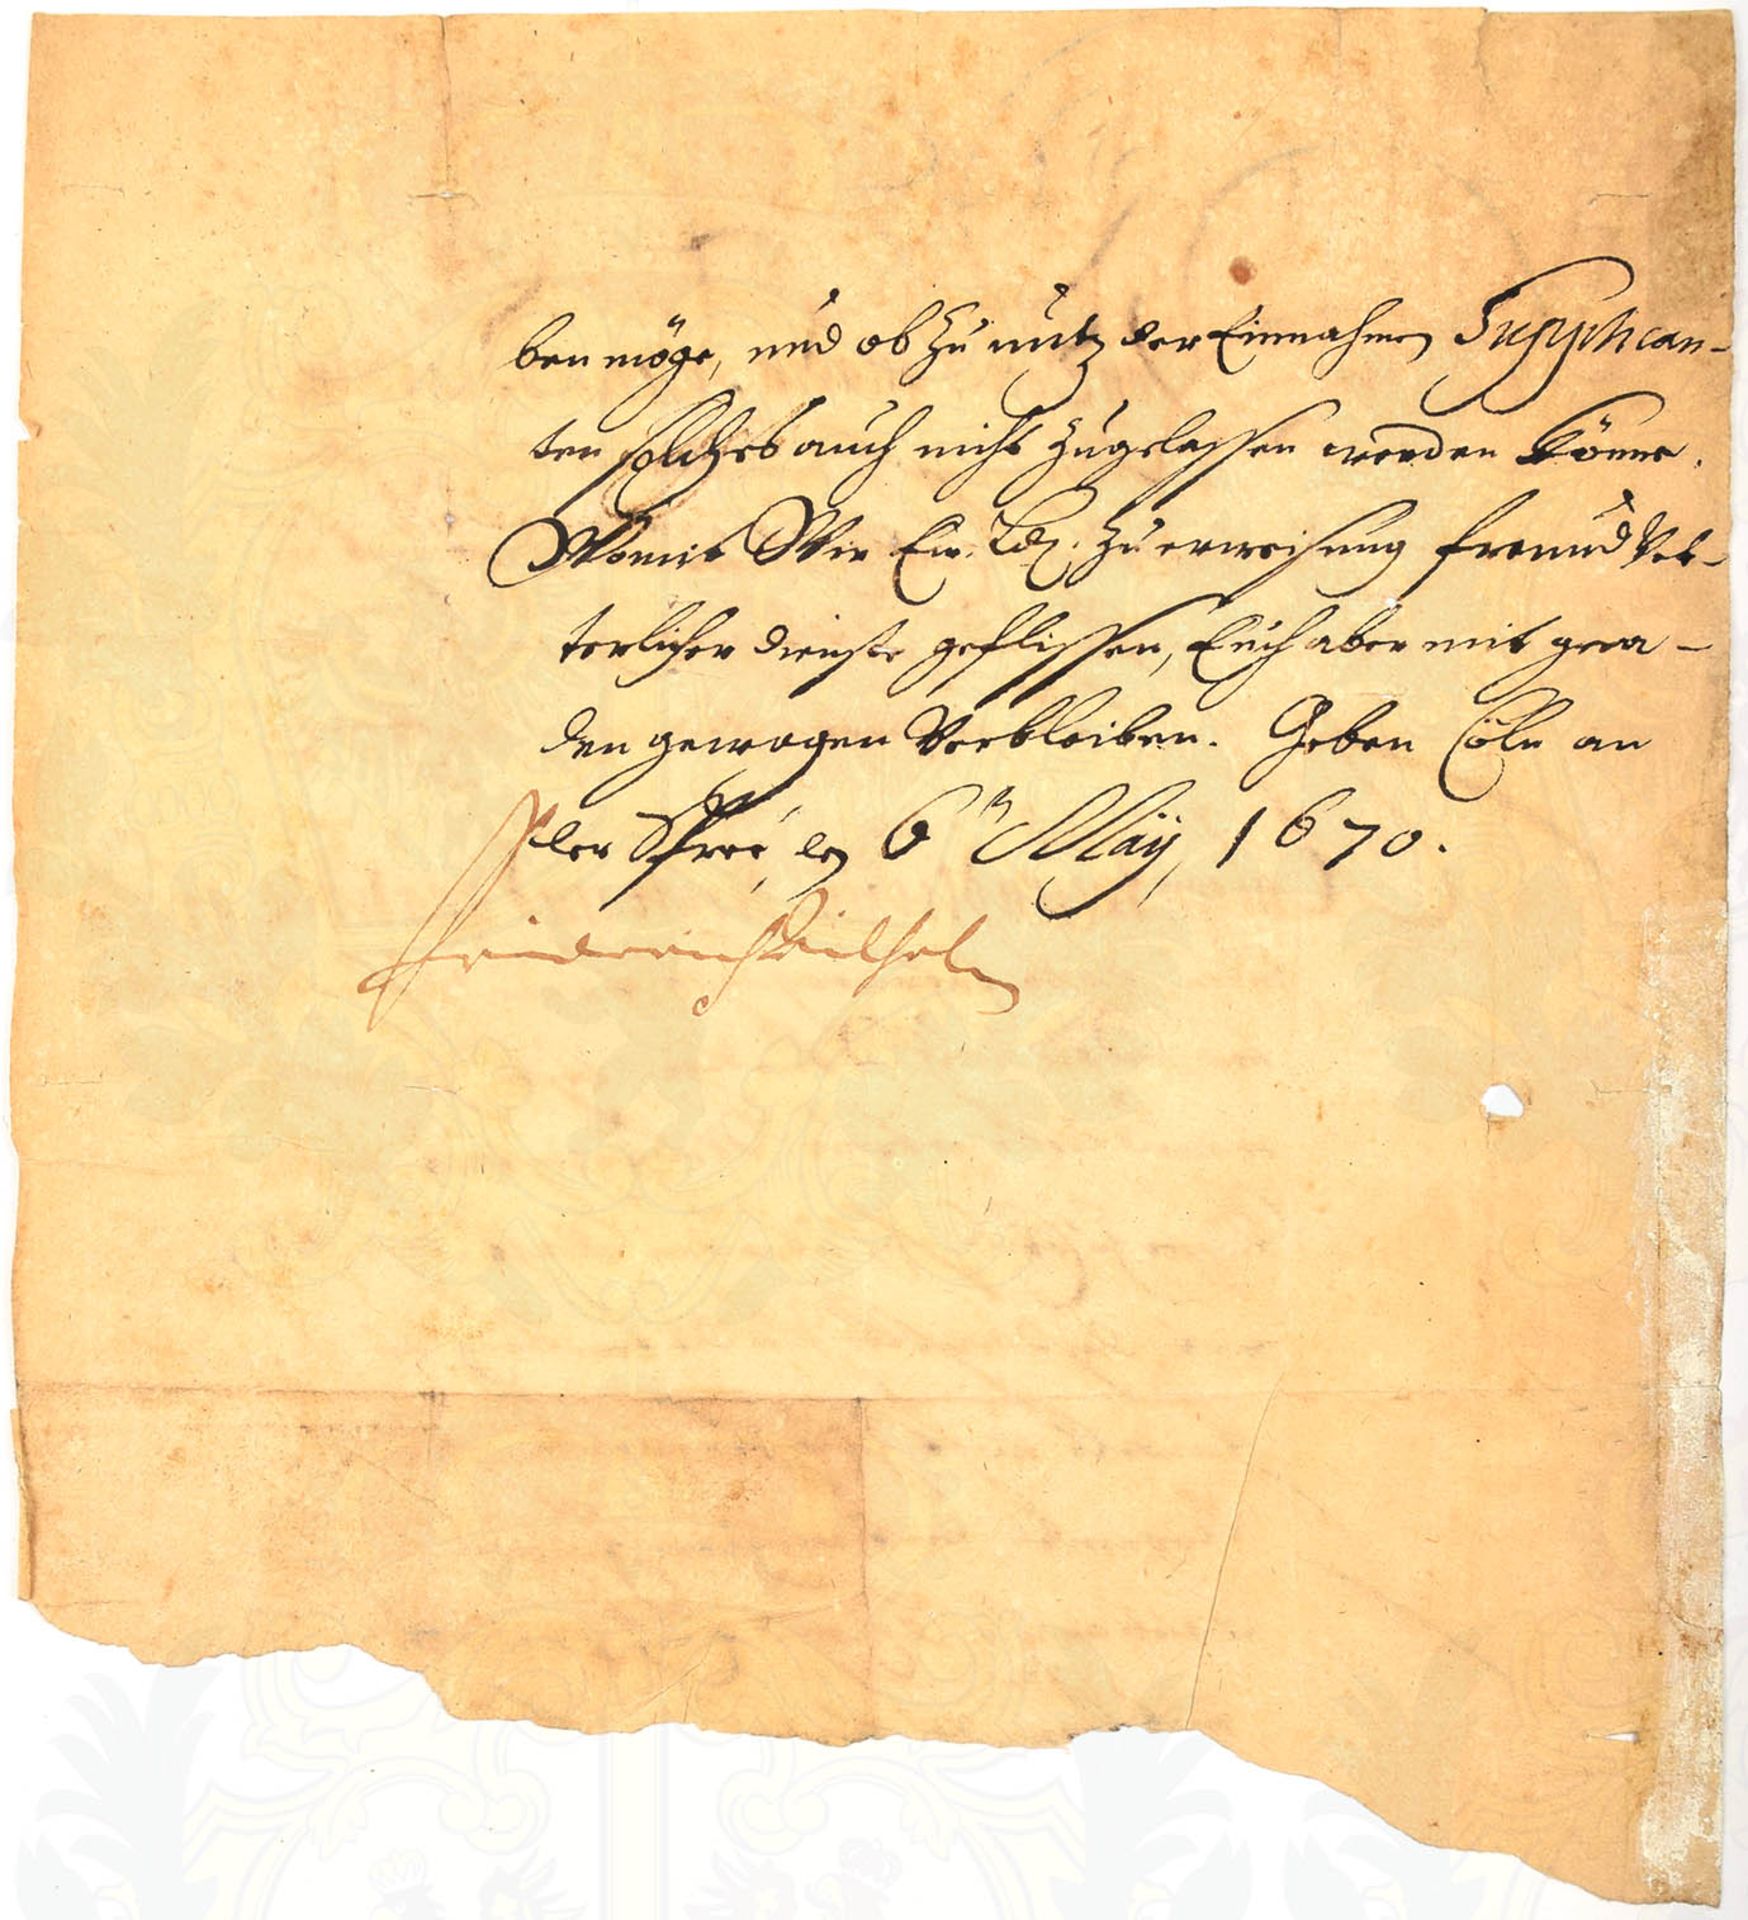 ben möge, und ob zu nutz der Einnahmen Supplican-
ten solches auch nicht zugelassen werden könne.
Womit Wir Ew. Ld. zu erweisung freund Vet-
terlicher dienste geflissen, Euch aber mit gna-
den gewogen Verbleiben. Geben Cölln an
der Spree, den 6ten Maÿ, 1670.
Friderich Wilhelm